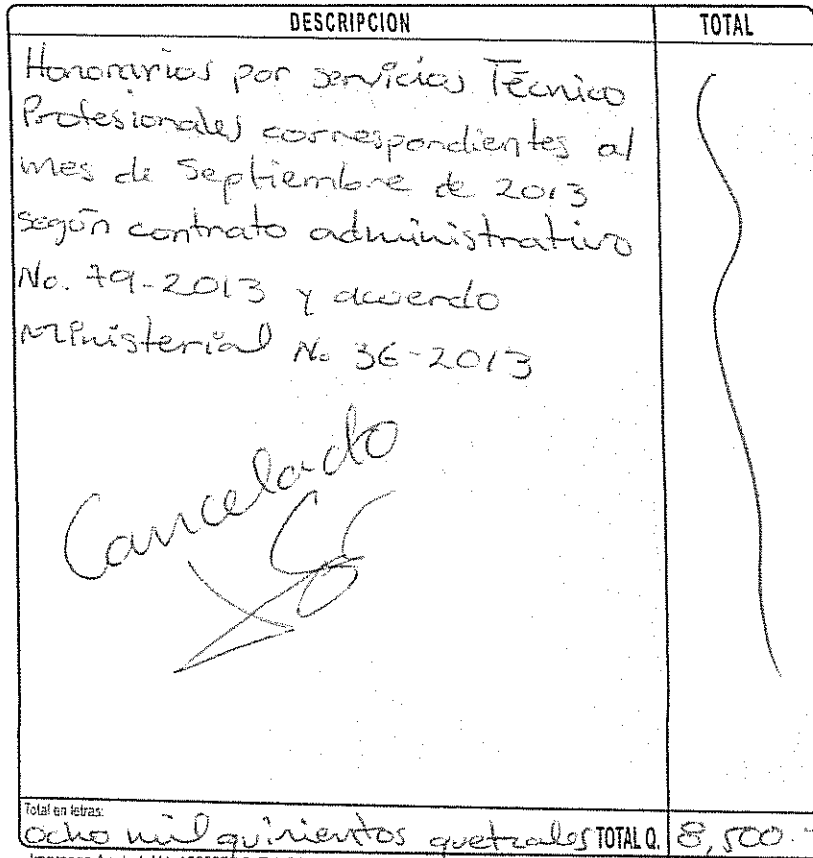 DESCRIPCION TOTAL
Honorarios por servicios Técnico
Profesionales correspondientes al
mes de Septiembre de 2013
según contrato administrativo
No. 79-2013 y acuerdo
Ministerial No 36-2013
Cancelado
Total en letras:
ocho mil quinientos quetzales TOTAL Q. 8,500.-